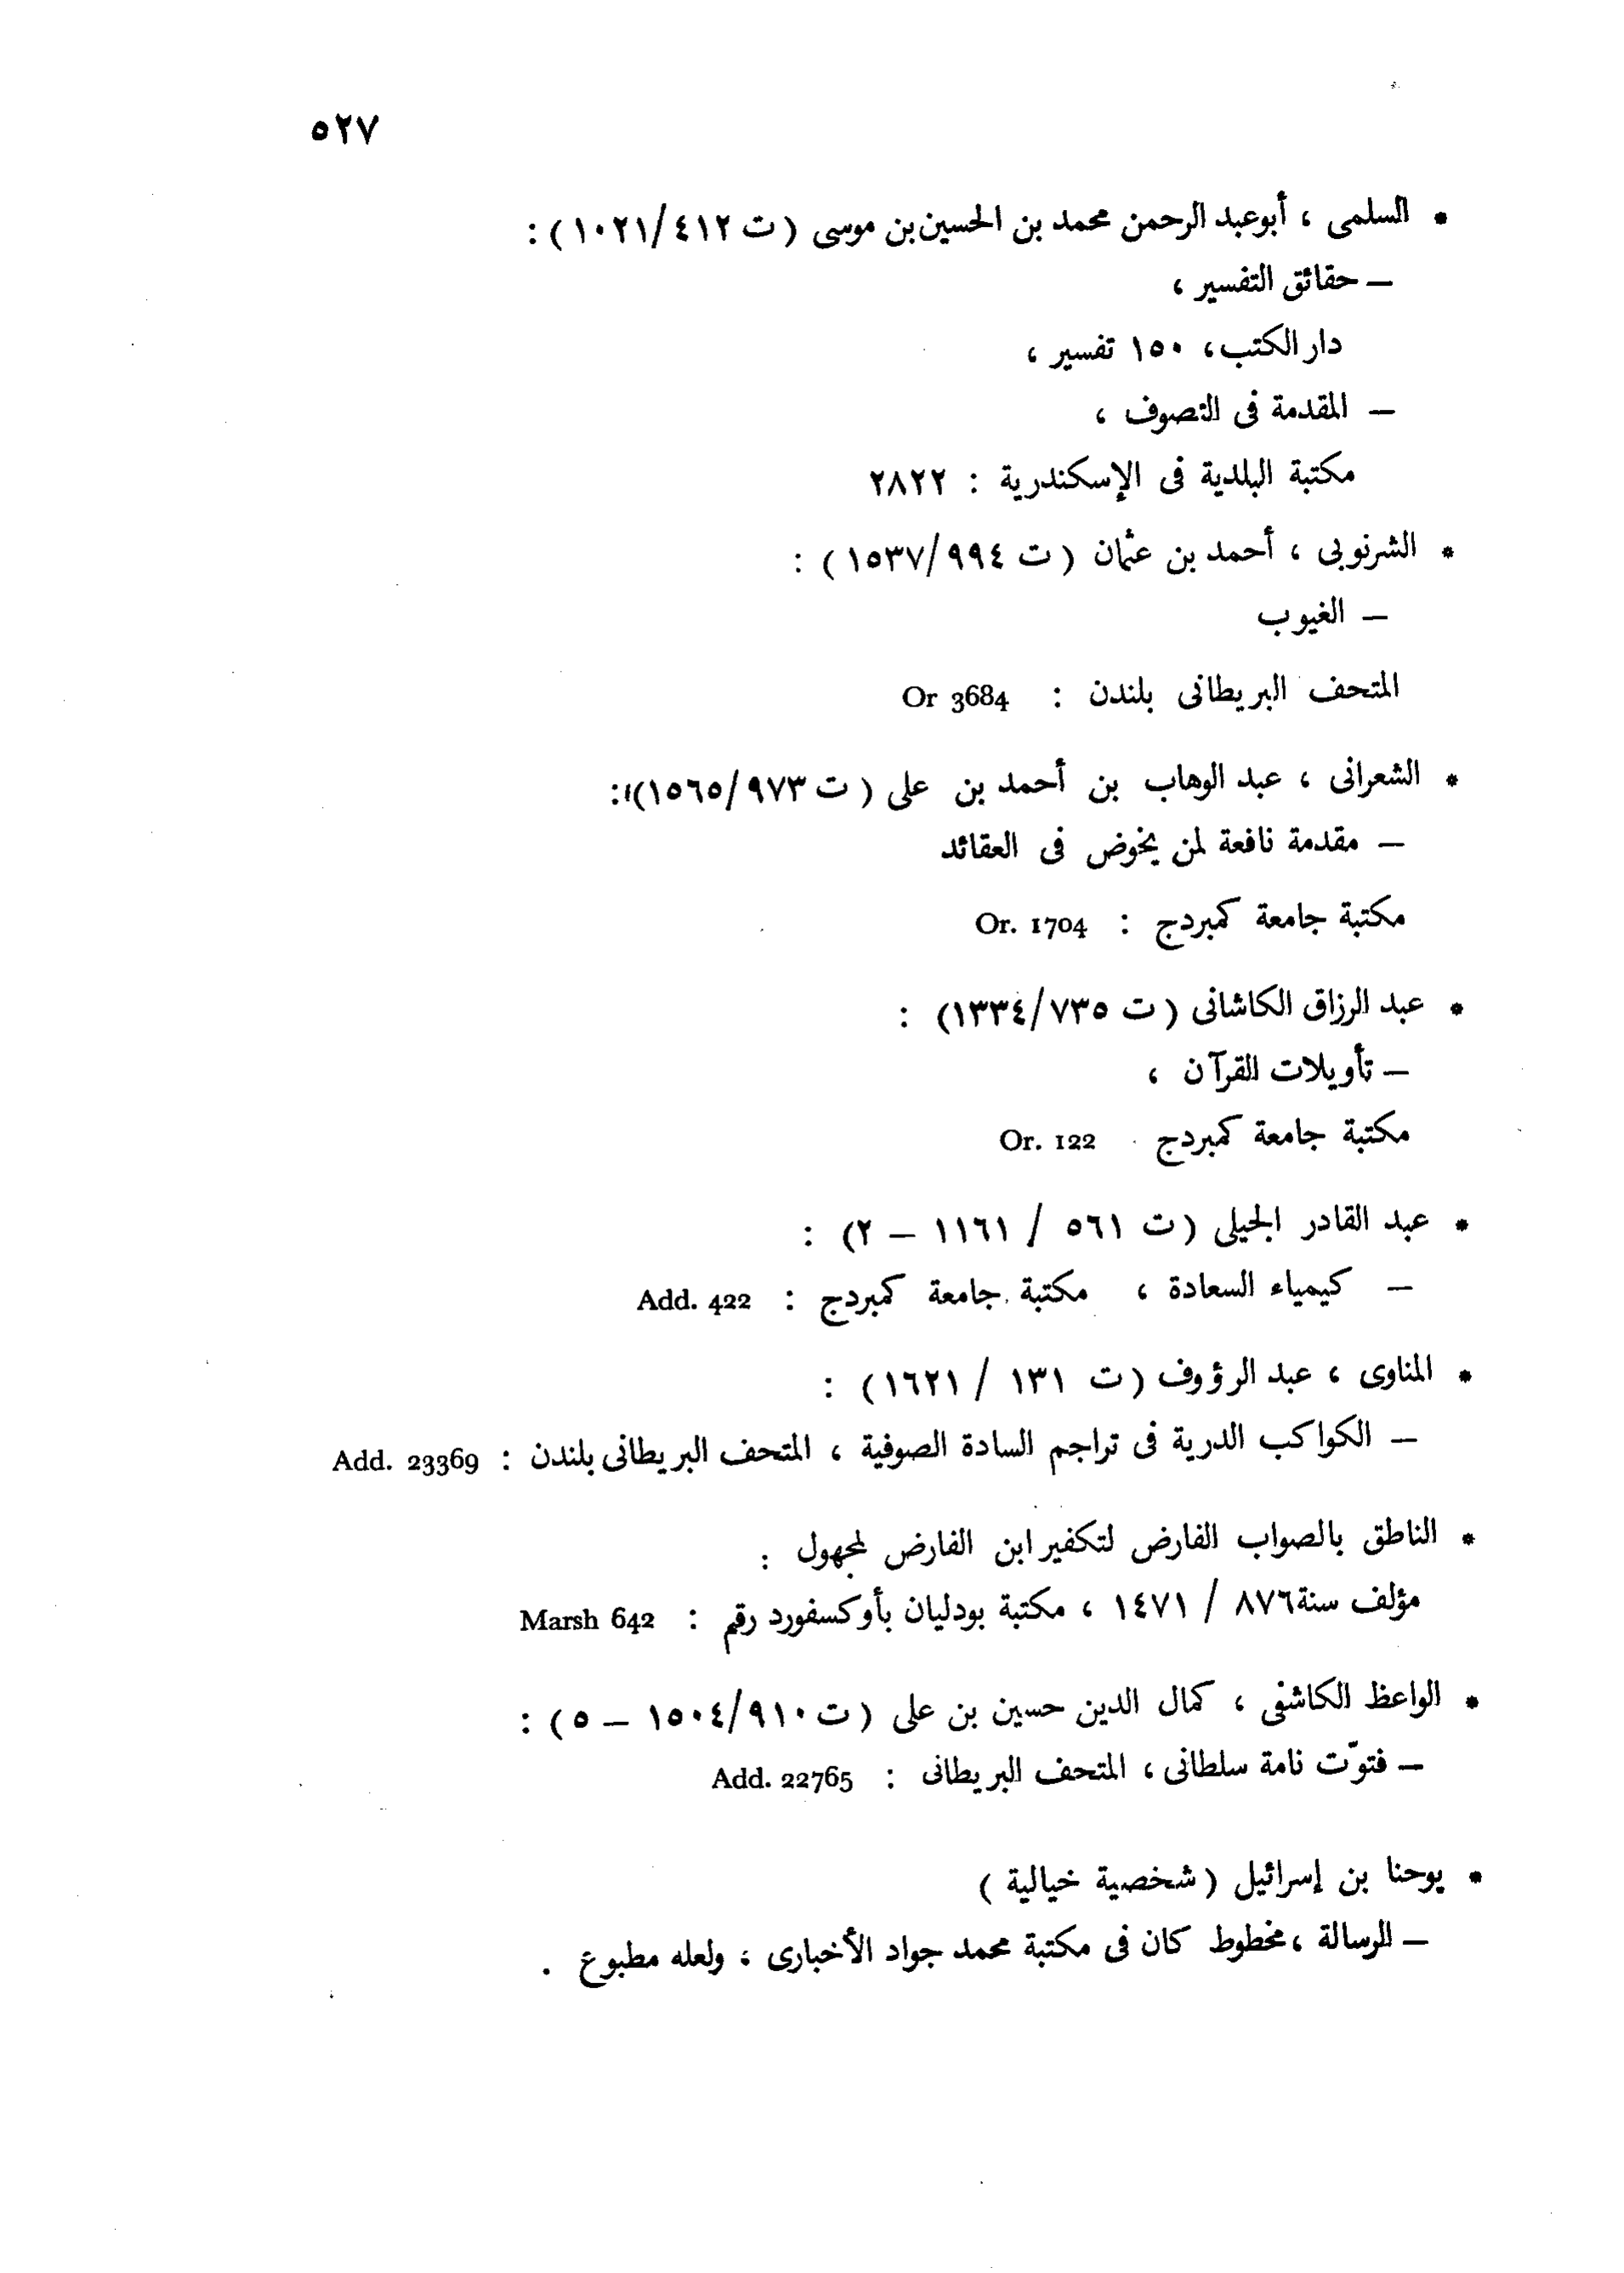 ٥٢٧
* السلمى ، أبوعبد الرحمن محمد بن الحسين بن موسى ( ت ٤١٢/١٠٢١ ) :
— حقائق التفسير ،
دار الكتب ، ١٥٠ تفسير ،
— المقدمة فى التصوف ،
مكتبة البلدية فى الإسكندرية : ٢٨٢٢
* الشرنوبى ، أحمد بن عثمان ( ت ٩٩٤/١٥٣٧ ) :
— الغيوب
المتحف البريطانى بلندن : Or 3684
* الشعرانى ، عبد الوهاب بن أحمد بن على ( ت ٩٧٣/١٥٦٥) :
— مقدمة نافعة لمن يخوض فى العقائد
مكتبة جامعة كمبردج : Or. 1704
* عبد الرزاق الكاشانى ( ت ٧٣٥/١٣٣٤) :
— تأويلات القرآن ،
مكتبة جامعة كمبردج Or. 122
* عبد القادر الجيلى ( ت ٥٦١ / ١١٦١ — ٢) :
— كيمياء السعادة ، مكتبة جامعة كمبردج : Add. 422
* المناوى ، عبد الرؤوف ( ت ١٣١ / ١٦٢١ ) :
— الكواكب الدرية فى تراجم السادة الصوفية ، المتحف البريطانى بلندن : Add. 23369
* الناطق بالصواب الفارض لتكفير ابن الفارض لمجهول :
مؤلف سنة ٨٧٦ / ١٤٧١ ، مكتبة بودليان بأوكسفورد رقم : Marsh 642
* الواعظ الكاشفى ، كمال الدين حسين بن على ( ت ٩١٠/١٥٠٤ — ٥ ) :
— فتوّت نامة سلطانى ، المتحف البريطانى : Add. 22765
* يوحنا بن إسرائيل ( شخصية خيالية )
— الرسالة ، مخطوط كان فى مكتبة محمد جواد الأخبارى ، ولعله مطبوع .